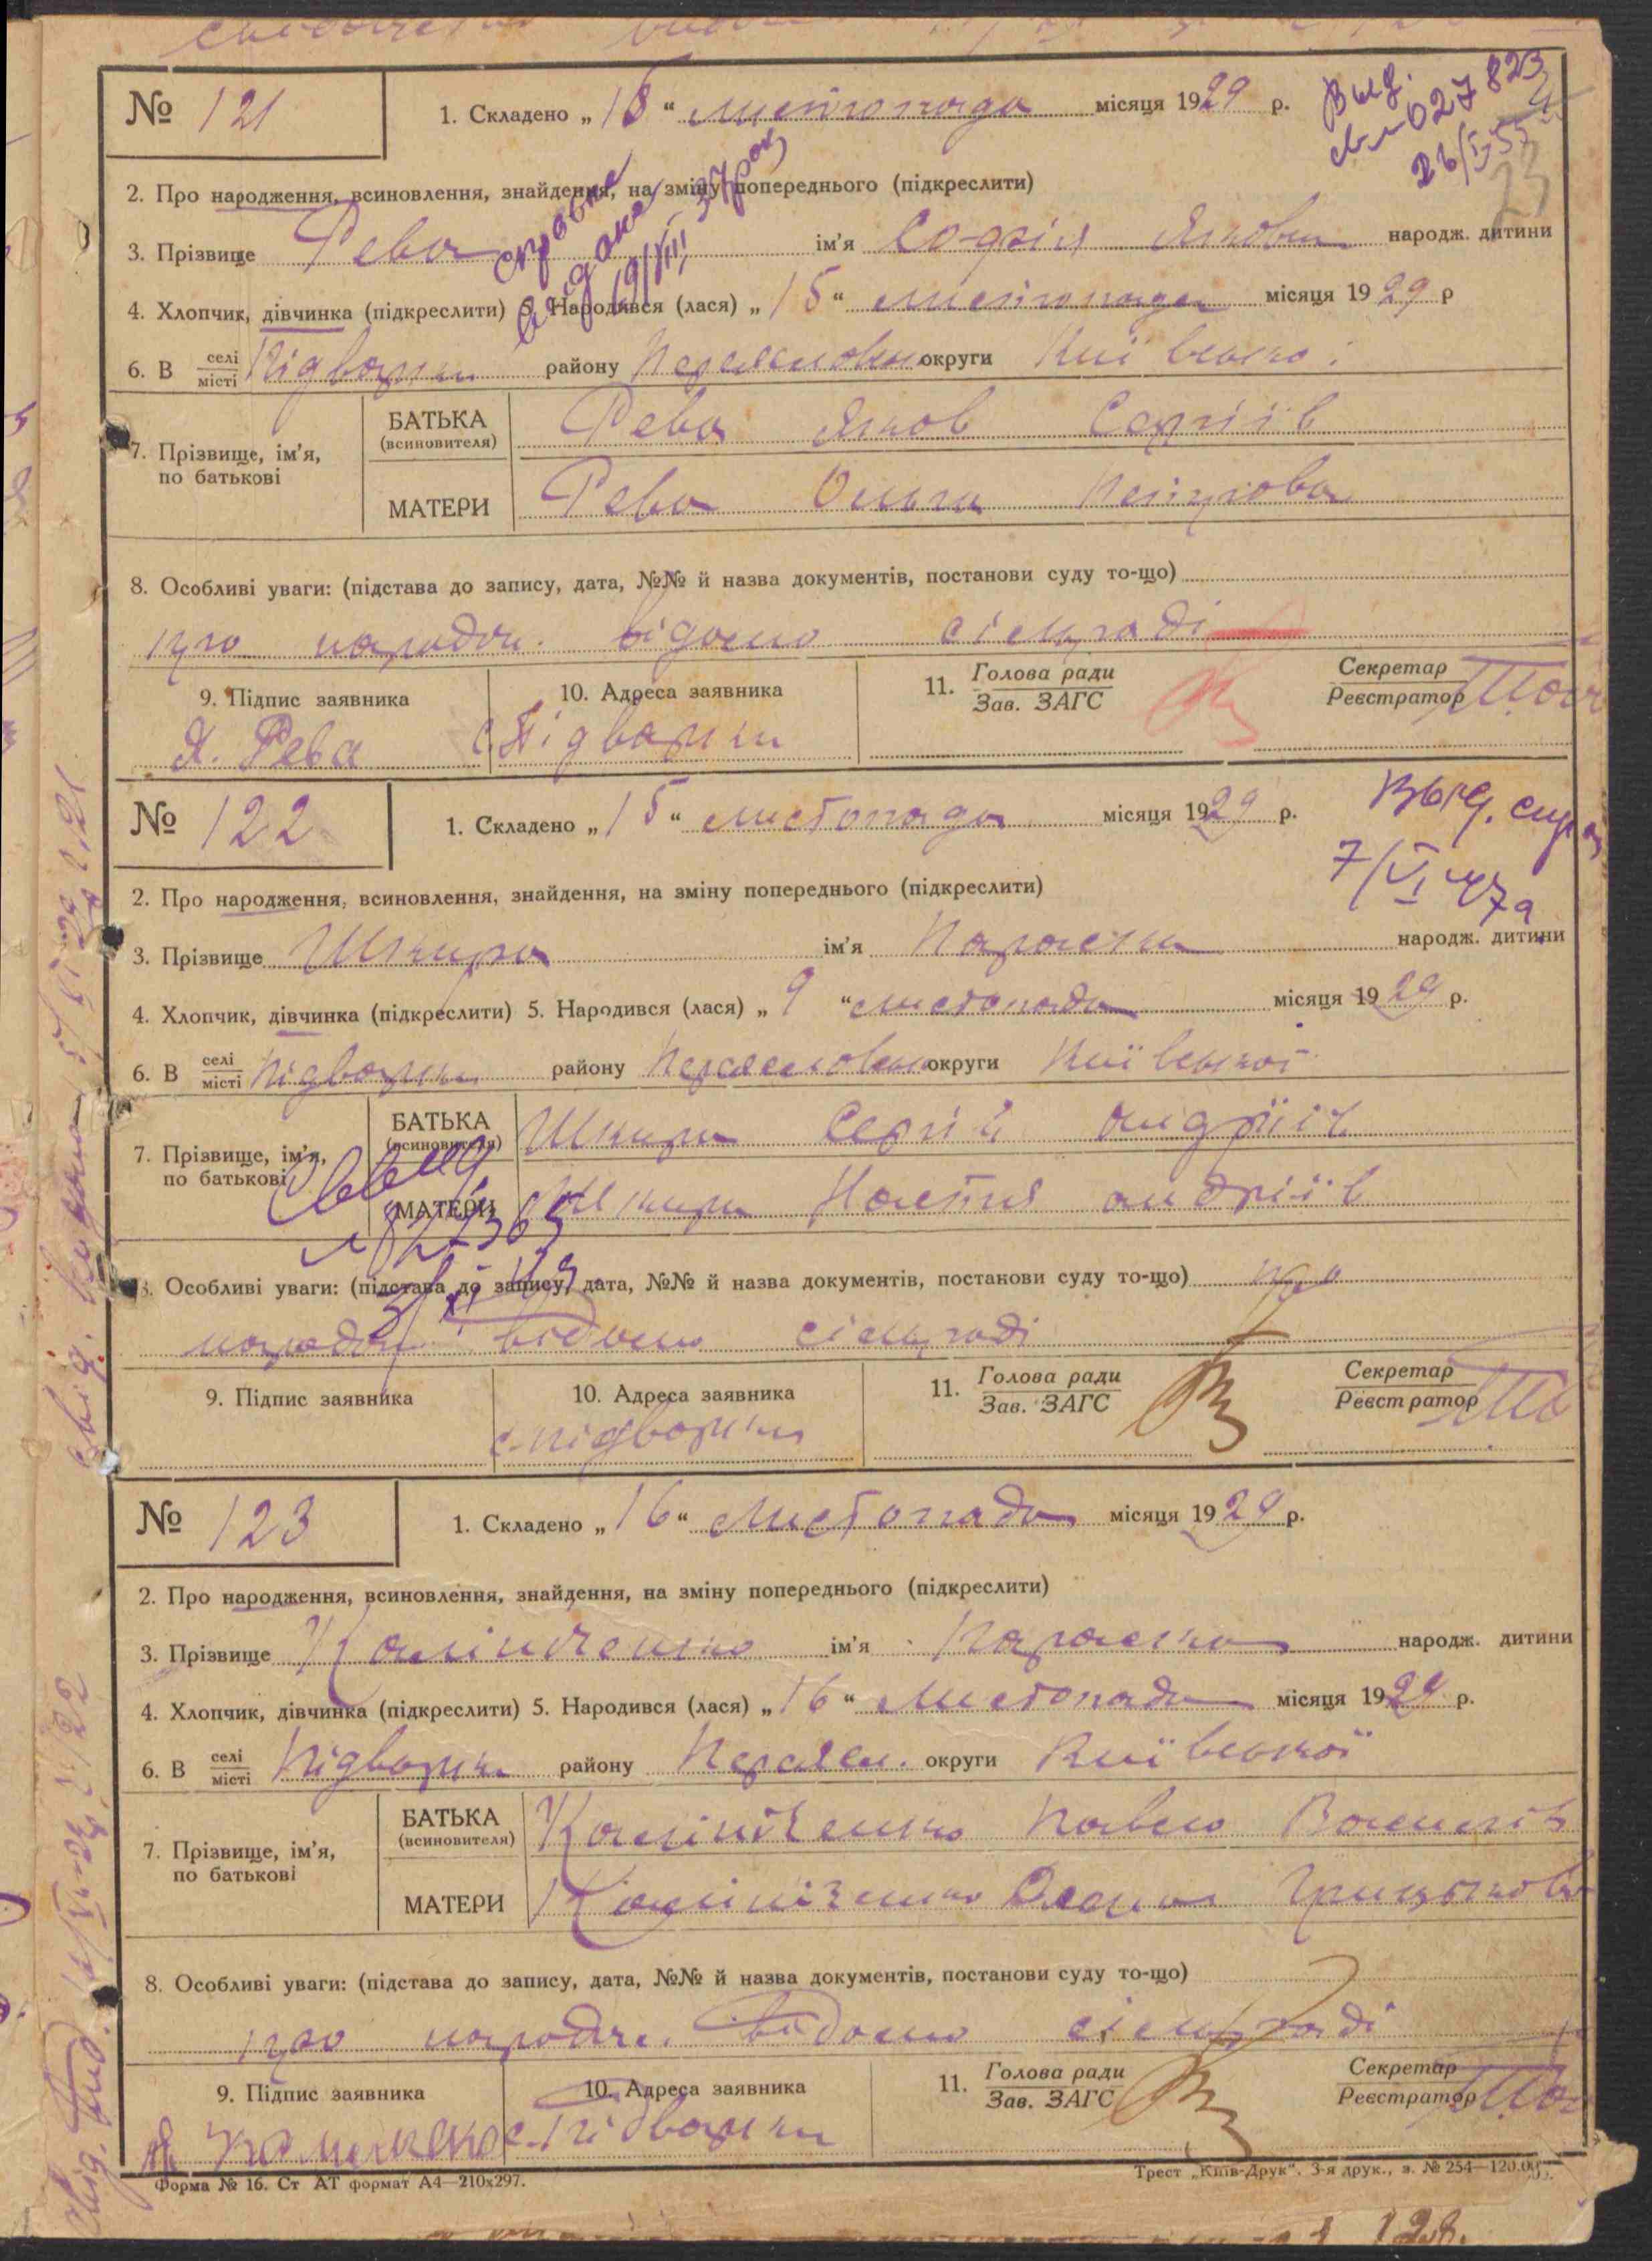 № 121
1. Складено „15“ листопада місяця 1929 р.
Выд.
св-м 027823
2. Про народження, всиновлення, знайдення, на зміну попереднього (підкреслити)
3. Прізвище Рева ім’я Софія Яковл народж. дитини
4. Хлопчик, дівчинка (підкреслити) 5. Народився (лася) „15“ листопада місяця 1929 р
6. В селі/місті Підварки району Переяславськ округи Київської
7. Прізвище, ім’я, по батькові
БАТЬКА (всиновителя) Рева Яков Сергіїв
МАТЕРИ Рева Ольга Петрова
8. Особливі уваги: (підстава до запису, дата, №№ й назва документів, постанови суду то-що)
про народж. відомо сільраді
9. Підпис заявника 10. Адреса заявника 11. Голова ради/Зав. ЗАГС Секретар/Реєстратор
Я. Рева с. Підварки
№ 122
1. Складено „15“ листопада місяця 1929 р.
Выд. спр
7/VI 47
2. Про народження, всиновлення, знайдення, на зміну попереднього (підкреслити)
3. Прізвище Шкира ім’я Параска народж. дитини
4. Хлопчик, дівчинка (підкреслити) 5. Народився (лася) „9“ листопада місяця 1929 р.
6. В селі/місті Підварки району Переяславськ округи Київської
7. Прізвище, ім’я, по батькові
БАТЬКА (всиновителя) Шкира Сергій андріїв
МАТЕРИ Шкира Настя андріїв
8. Особливі уваги: (підстава до запису, дата, №№ й назва документів, постанови суду то-що) про
народж. відомо сільраді
9. Підпис заявника 10. Адреса заявника 11. Голова ради/Зав. ЗАГС Секретар/Реєстратор
с. підварки
№ 123
1. Складено „16“ листопада місяця 1929 р.
2. Про народження, всиновлення, знайдення, на зміну попереднього (підкреслити)
3. Прізвище Калініченко ім’я Параска народж. дитини
4. Хлопчик, дівчинка (підкреслити) 5. Народився (лася) „16“ листопада місяця 1929 р.
6. В селі/місті Підварки району Переясл. округи Київської
7. Прізвище, ім’я, по батькові
БАТЬКА (всиновителя) Калініченко Павло Васильїв
МАТЕРИ Калініченко Грицькова
8. Особливі уваги: (підстава до запису, дата, №№ й назва документів, постанови суду то-що)
про народж. відомо сільраді
9. Підпис заявника 10. Адреса заявника 11. Голова ради/Зав. ЗАГС Секретар/Реєстратор
с. Підварки
Форма № 16. Ст АТ формат А4—210х297.
Трест „Київ-Друк“. 3-я друк., з. № 254—120.00